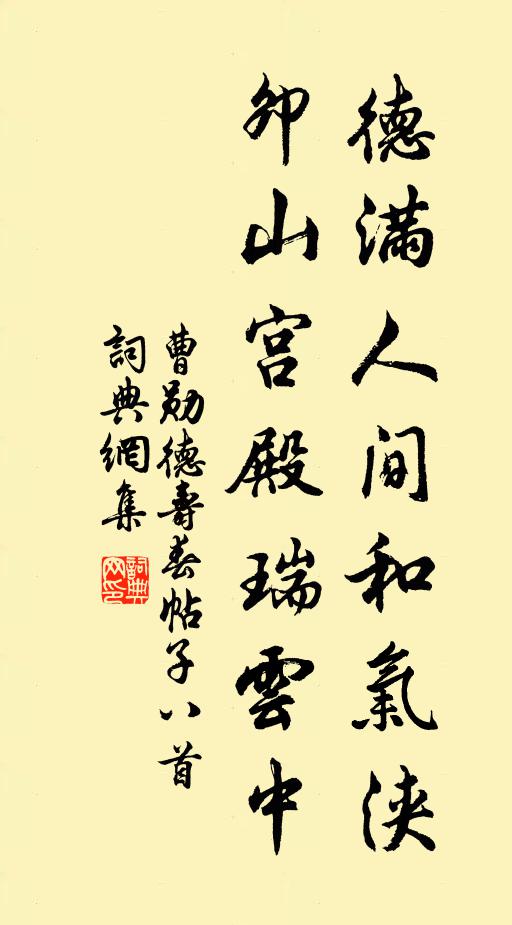 德滿人间和氣浹
卯山宫殿瑞雲中
曹勛德壽春帖子八首
詞典網集
詞典网印